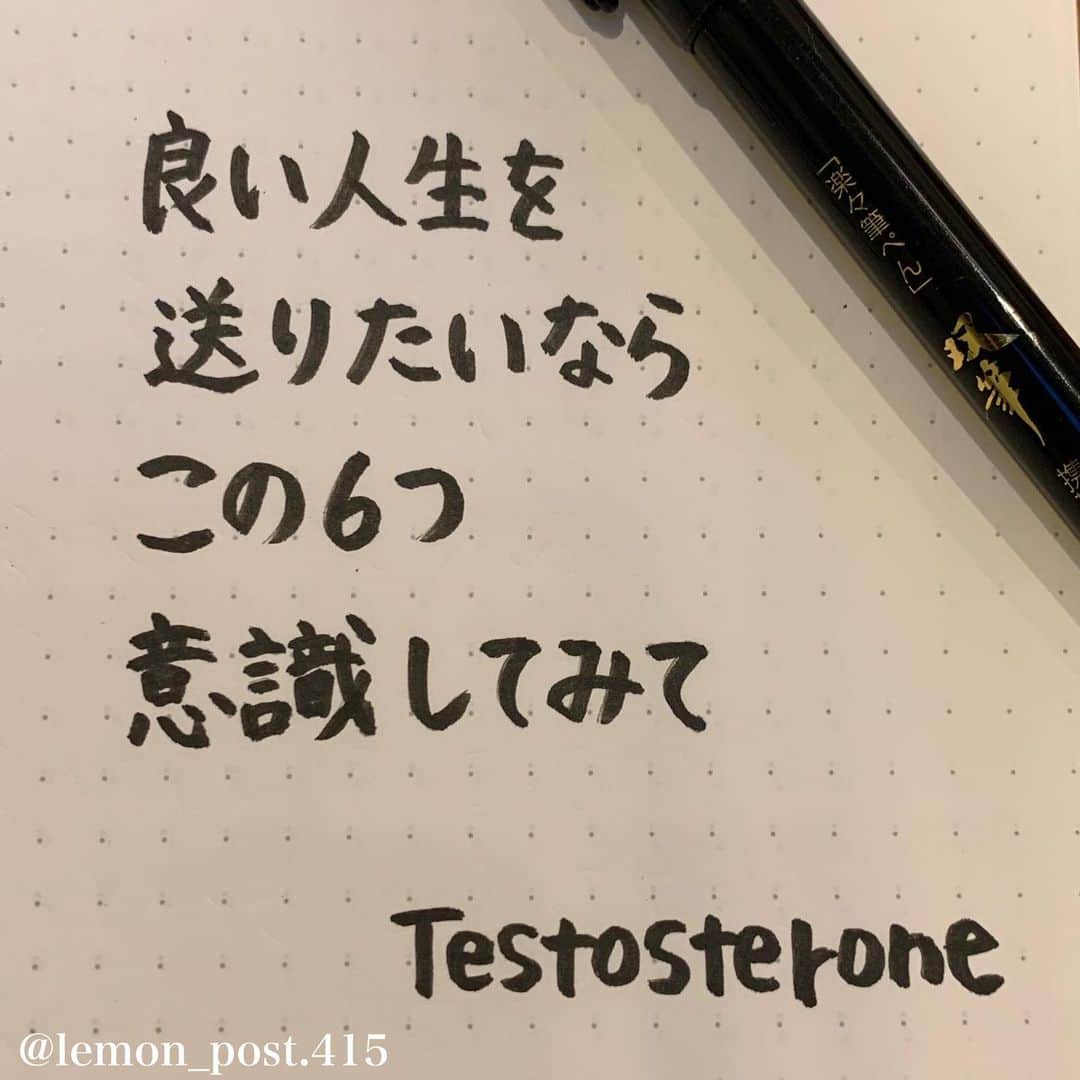 良い人生を
送りたいなら
この6つ
意識してみて
Testosterone
「楽々筆ぺん」
双筆
@lemon_post.415